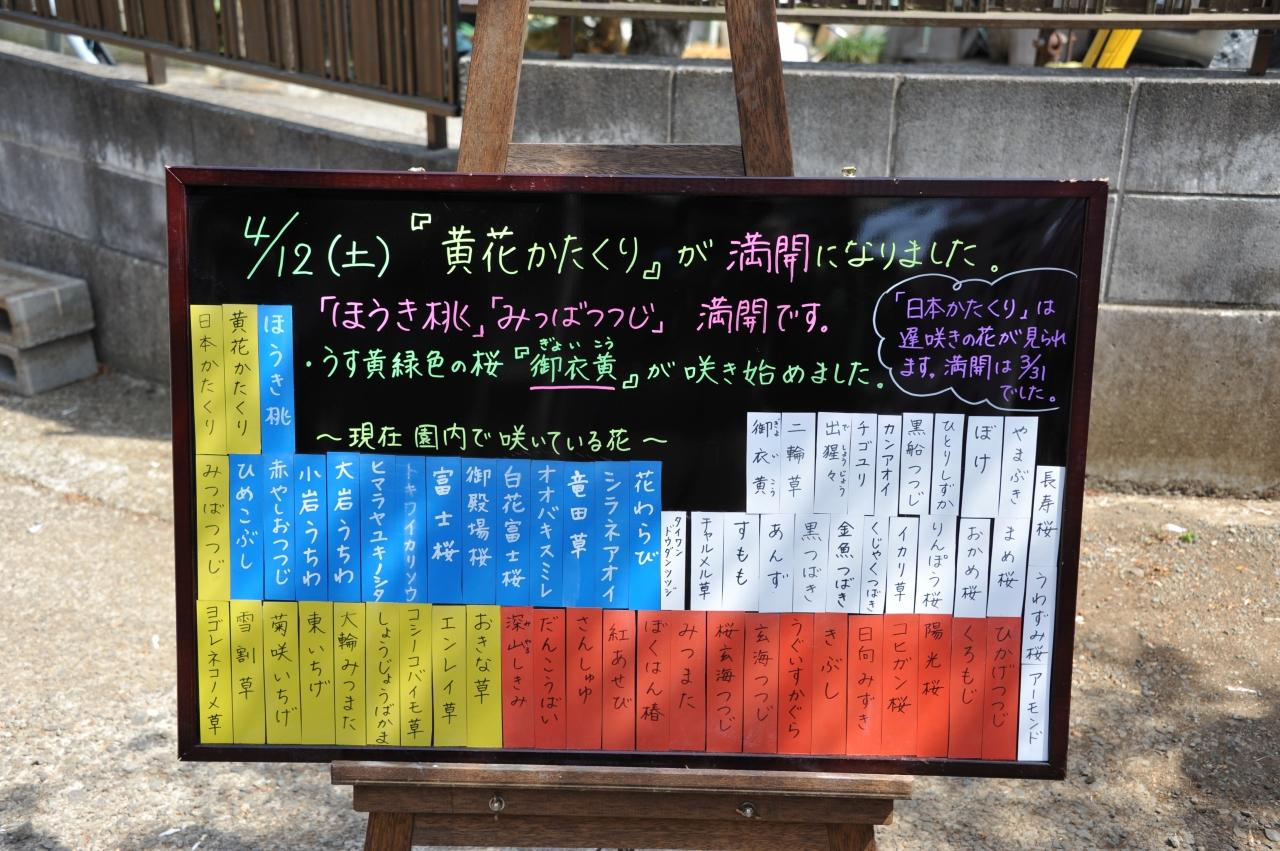 4/12(土)『黄花かたくり』が満開になりました。
「ほうき桃」「みつばつつじ」満開です。
・うす黄緑色の桜『御衣黄』が咲き始めました。
ぎょいこう
「日本かたくり」は
遅咲きの花が見られ
ます。満開は3/31
でした。
～現在 園内で咲いている花～
日本かたくり
黄花かたくり
ほうき桃
みつばつつじ
ひめこぶし
赤やしおつつじ
小岩うちわ
大岩うちわ
ヒマラヤユキノシタ
トキワイカリソウ
富士桜
御殿場桜
白花富士桜
オオバキスミレ
竜田草
シラネアオイ
花わらび
御衣黄
ぎょいこう
二輪草
出猩々
でしょうじょう
チゴユリ
カンアオイ
黒船つつじ
ひとりしずか
ぼけ
やまぶき
長寿桜
タイワンドウダンツツジ
チャルメル草
すもも
あんず
黒つばき
金魚つばき
くじゃくつばき
イカリ草
りんぽう桜
おかめ桜
まめ桜
うわずみ桜
アーモンド
ヨゴレネコノメ草
雪割草
菊咲いちげ
東いちげ
大輪みつまた
しょうじょうばかま
コシノコバイモ草
エンレイ草
おきな草
深山しきみ
みやま
だんこうばい
さんしゅゆ
紅あせび
ぼくはん椿
みつまた
桜玄海つつじ
玄海つつじ
うぐいすかぐら
きぶし
日向みずき
コヒガン桜
陽光桜
くろもじ
ひかげつつじ